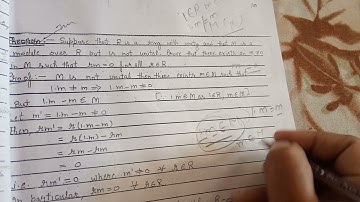 Theorem:- Suppose that R is a ring with unity and that M is a
module over R but is not unital. Prove that there exists an m ≠ 0
in M such that rm = 0 for all r∈R
Proof:- M is not unital then there exists m∈M such that
1.m ≠ m ⇒ 1.m - m ≠ 0
But 1.m - m ∈ M
Let m' = 1.m - m ≠ 0
1.m = m
Then, rm' = r(1.m - m)
= r(1.m) - rm
= rm - rm
= 0
i.e. rm' = 0 where m' ≠ 0 ∀ r∈R
In particular, rm = 0 ∀ r∈R